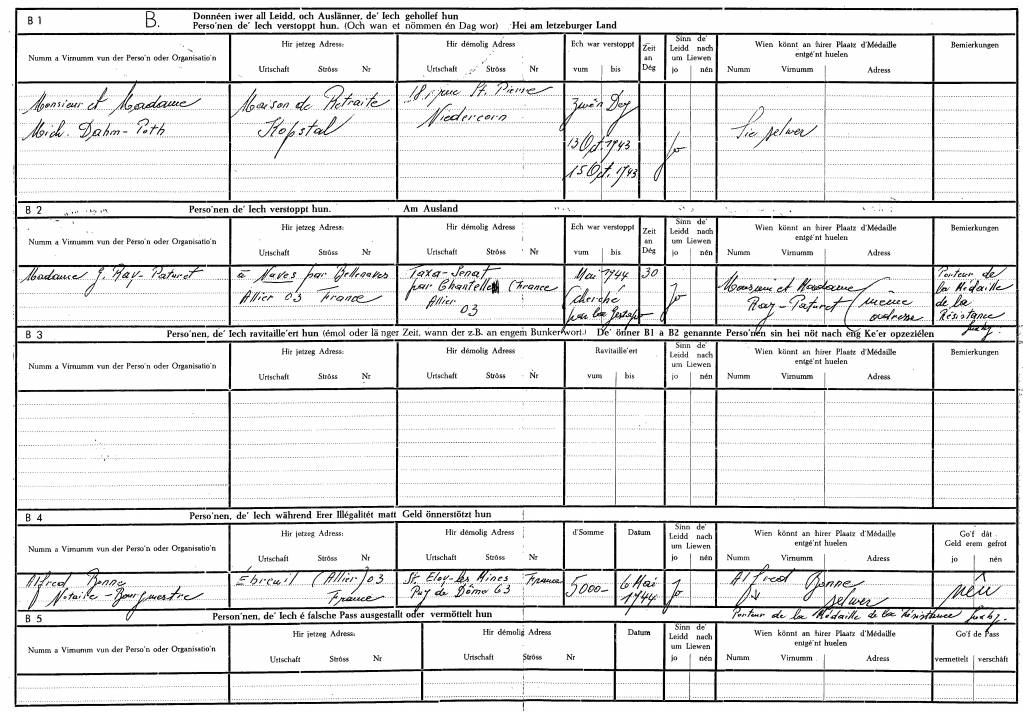 B 1
B.
Donnéen iwer all Leidd, och Auslänner, de' Iech gehollef hun
Perso'nen de' Iech verstoppt hun. (Och wan et nömmen én Dag wor) Hei am letzeburger Land
Numm a Virnumm vun der Perso'n oder Organisatio'n
Hir jetzeg Adress:
Urtschaft Ströss Nr
Hir démolig Adress
Urtschaft Ströss Nr
Ech war verstoppt
vum bis
Zeit
an
Dég
Sinn de'
Leidd nach
um Liewen
jo nén
Wien könnt an hirer Plaatz d'Médaille
entgé'nt huelen
Numm Virnumm Adress
Bemierkungen
Monsieur et Madame
Mich. Dahm-Poth
Maison de Retraite
Kopstal
18, rue St. Pierre
Niedercorn
zwén Deg
13 Oct. 1943
15 Oct. 1943
Jo
Sie selwer
B 2
Perso'nen de' Iech verstoppt hun.
Am Ausland
Numm a Virnumm vun der Perso'n oder Organisatio'n
Hir jetzeg Adress:
Urtschaft Ströss Nr
Hir démolig Adress:
Urtschaft Ströss Nr
Ech war verstoppt
vum bis
Zeit
an
Dég
Sinn de'
Leidd nach
um Liewen
jo nén
Wien könnt an hirer Plaatz d'Médaille
entgé'nt huelen
Numm Virnumm Adress
Bemierkungen
Madame J. Ray-Paturet
à Naves par Bellenaves
Allier 03 France
Taxa-Senat
par Chantelle (France
Allier
03
Mai 1944
Cherché
par la Gestapo
30
Jo
Monsieur et Madame
Ray-Paturet
(même
adresse
Porteur de
la Médaille
de la
Résistance
B 3
Perso'nen, de' Iech ravitaille'ert hun (émol oder länger Zeit, wann der z.B. an engem Bunker wort.) De' önner B1 a B2 genannte Perso'nen sin hei nöt nach eng Ke'er opzeziélen
Numm a Virnumm vun der Perso'n oder Organisatio'n
Hir jetzeg Adress:
Urtschaft Ströss Nr
Hir démolig Adress
Urtschaft Ströss Nr
Ravitaille'ert
vum bis
Sinn de'
Leidd nach
um Liewen
jo nén
Wien könnt an hirer Plaatz d'Médaille
entgé'nt huelen
Numm Virnumm Adress
Bemierkungen
B 4
Perso'nen, de' Iech während Erer Illégalitét matt Geld önnerstötzt hun
Numm a Virnumm vun der Perso'n oder Organisatio'n
Hir jetzeg Adress:
Urtschaft Ströss Nr
Hir démolig Adress
Urtschaft Ströss Nr
d'Somme
Datum
Sinn de'
Leidd nach
um Liewen
jo nén
Wien könnt an hirer Plaatz d'Médaille
entgé'nt huelen
Numm Virnumm Adress
Go'f dât
Geld erem gefrot
jo nén
Alfred Bonne
Notaire-Bourgmestre
Ebreuil (Allier) 03
France
St. Eloy-les Mines France
Puy de Dôme 63
5000-
6 Mai
1944
Jo
Alfred Bonne
selwer
Porteur de la Médaille de la Résistance
B 5
Person'nen, de' Iech é falsche Pass ausgestallt oder vermöttelt hun
Numm a Virnumm vun der Perso'n oder Organisatio'n
Hir jetzeg Adress:
Urtschaft Ströss Nr
Hir démolig Adress:
Urtschaft Ströss Nr
Datum
Sinn de'
Leidd nach
um Liewen
jo nén
Wien könnt an hirer Plaatz d'Médaille
entgé'nt huelen
Numm Virnumm Adress
Go'f de Pass
vermettelt verschâft